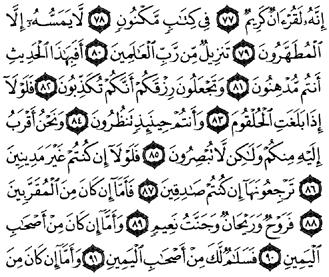 إِنَّهُۥ لَقُرْءَانٌ كَرِيمٌ ٧٧ فِي كِتَٰبٍ مَّكْنُونٍ ٧٨ لَّا يَمَسُّهُۥٓ إِلَّا
ٱلْمُطَهَّرُونَ ٧٩ تَنزِيلٌ مِّن رَّبِّ ٱلْعَٰلَمِينَ ٨٠ أَفَبِهَٰذَا ٱلْحَدِيثِ
أَنتُم مُّدْهِنُونَ ٨١ وَتَجْعَلُونَ رِزْقَكُمْ أَنَّكُمْ تُكَذِّبُونَ ٨٢ فَلَوْلَآ
إِذَا بَلَغَتِ ٱلْحُلْقُومَ ٨٣ وَأَنتُمْ حِينَئِذٍ تَنظُرُونَ ٨٤ وَنَحْنُ أَقْرَبُ
إِلَيْهِ مِنكُمْ وَلَٰكِن لَّا تُبْصِرُونَ ٨٥ فَلَوْلَآ إِن كُنتُمْ غَيْرَ مَدِينِينَ
٨٦ تَرْجِعُونَهَآ إِن كُنتُمْ صَٰدِقِينَ ٨٧ فَأَمَّآ إِن كَانَ مِنَ ٱلْمُقَرَّبِينَ
٨٨ فَرَوْحٌ وَرَيْحَانٌ وَجَنَّتُ نَعِيمٍ ٨٩ وَأَمَّآ إِن كَانَ مِنْ أَصْحَٰبِ
ٱلْيَمِينِ ٩٠ فَسَلَٰمٌ لَّكَ مِنْ أَصْحَٰبِ ٱلْيَمِينِ ٩١ وَأَمَّآ إِن كَانَ مِنَ